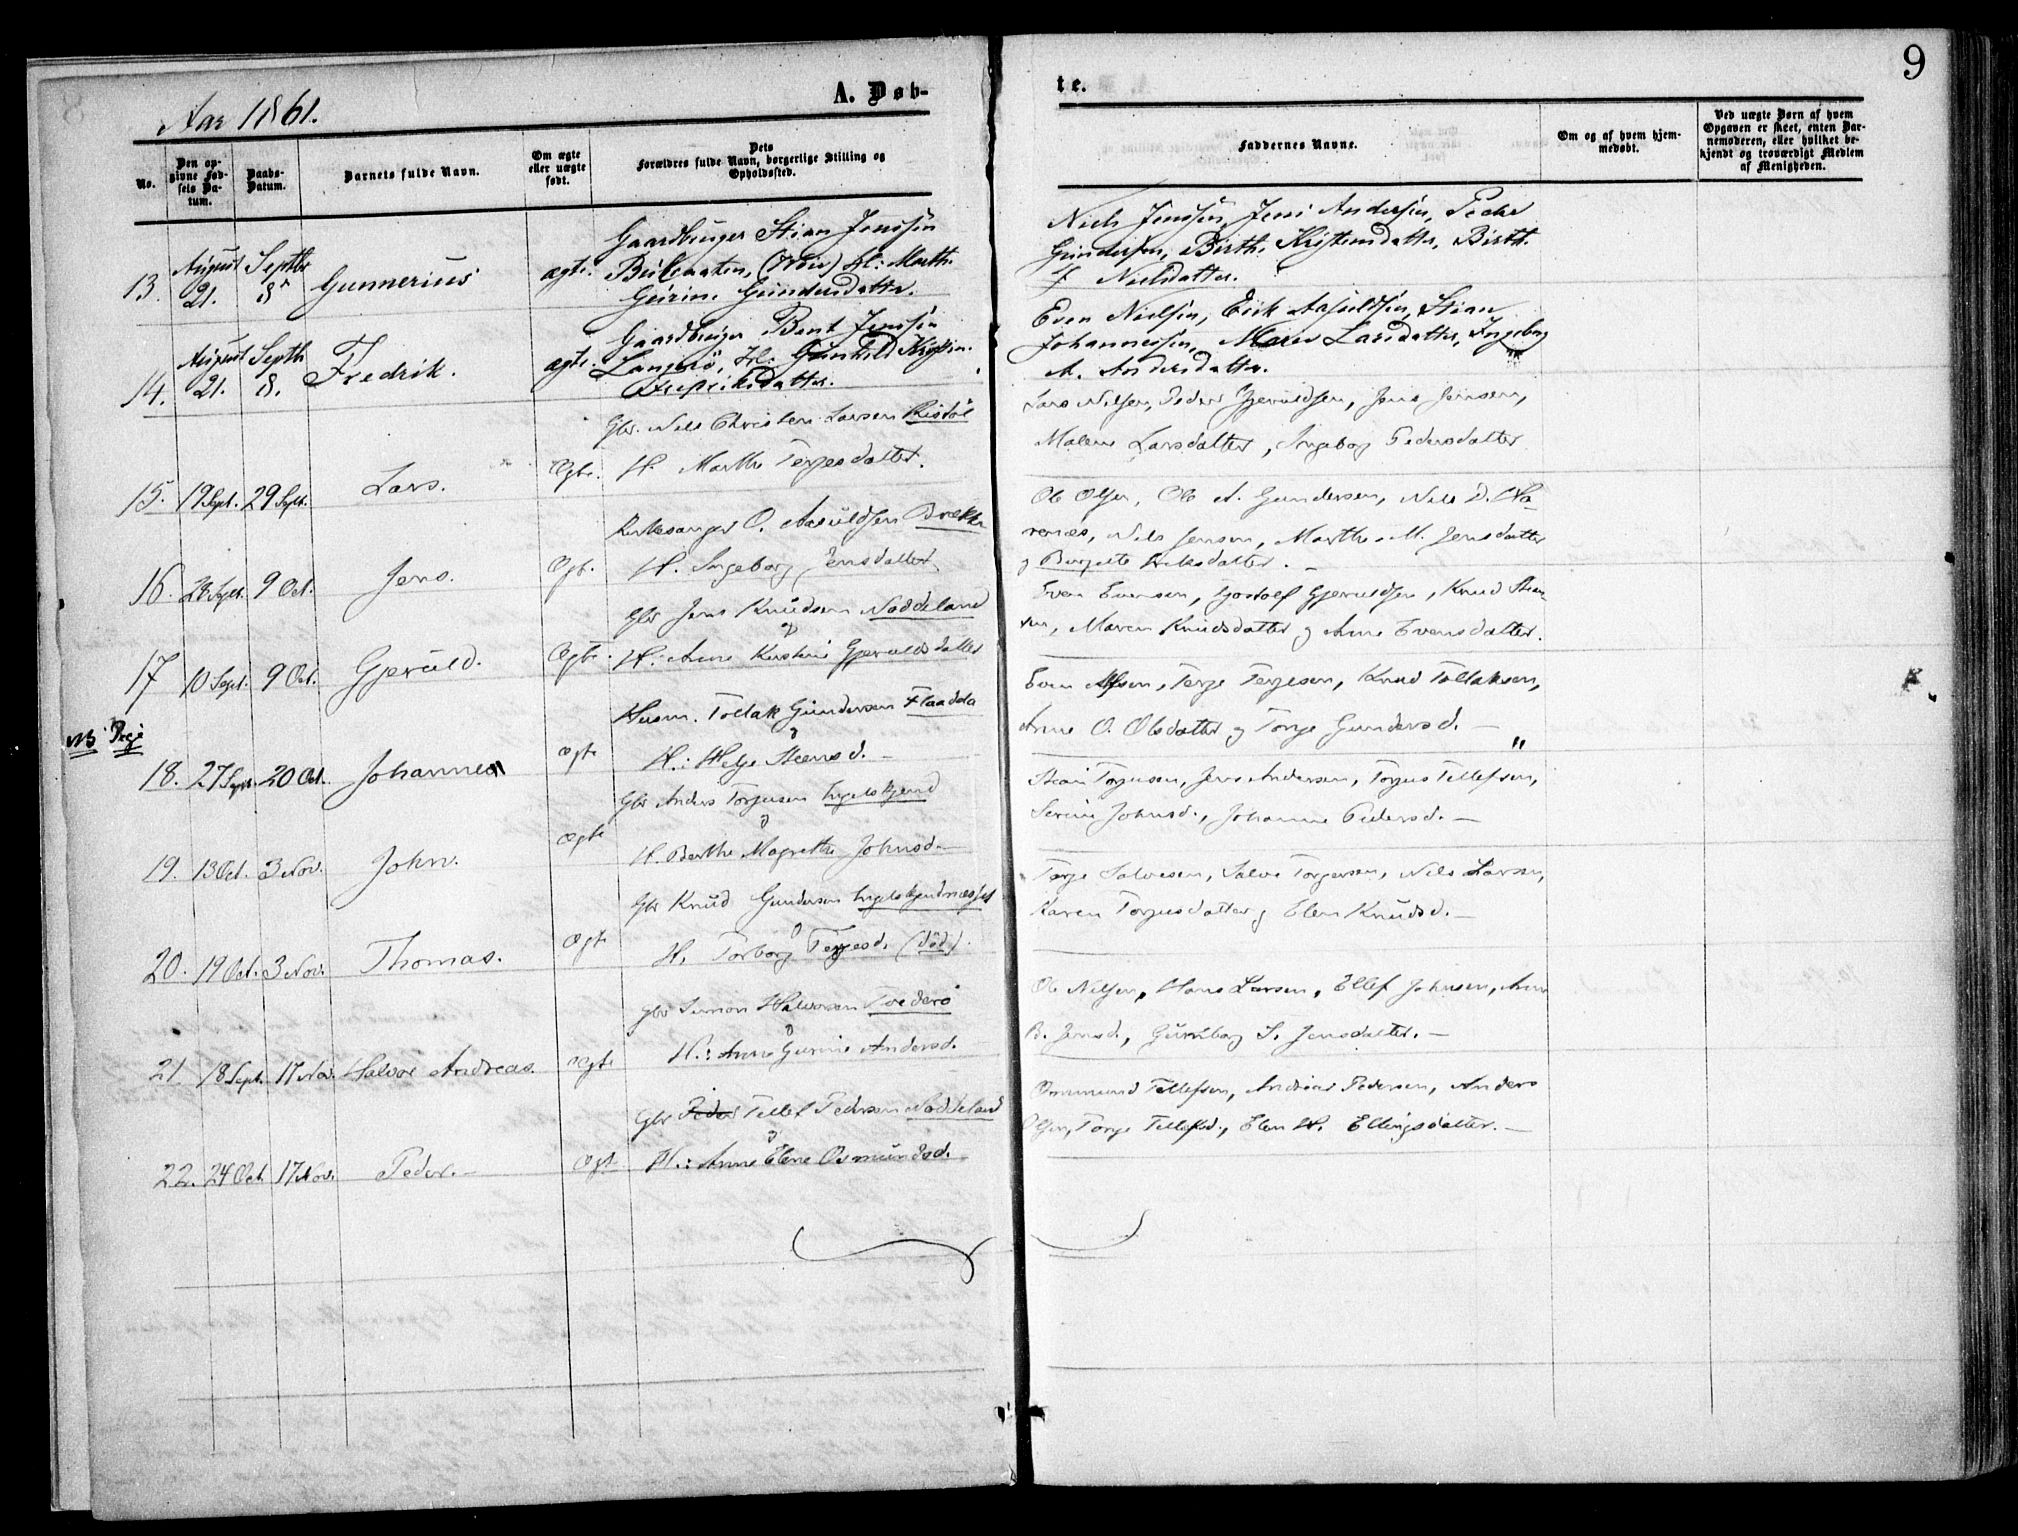 9
Aar 1861.
A. Døb-
te.
No.
Den opgivne Fødsels Datum.
Daabs-Datum.
Barnets fulde Navn.
Om ægte eller uægte født.
Dets Forældres fulde Navn, borgerlige Stilling og Opholdssted.
Faddernes Navne.
Om og af hvem hjemmedøbt.
Ved uægte Børn af hvem Opgaven er skeet, enten Barnemoderen, eller hvilket bekjendt og troværdigt Medlem af Menigheden.
Gaardbruger Stian Jenssen
13. August 21. Septbr 8 Gunnerius ægte.
H: Marthe
Gurine Gundersdatter.
Niels Jenssen, Jens Andersen, Peder
Gundersen, Birthe Kristensdatter, Birthe
Nielsdatter.
Gaardbruger Bent Jenssen
14. August 21. Septb 8. Fredrik. ægte.
Langerø, H: Gunhild Kristin.
Fredriksdatter.
Even Nielsen, Erik Aasuldsen, Stian
Johannessen, Maren Larsdatter, Ingeborg
A. Andersdatter.
Gbr. Nils Christen Larsen Ristøl
15. 19 Sept. 29 Sept. Lars. Ægte.
H. Marthe Terjesdatter.
Lars Nilsen, Peder Gjeruldsen, Jens Jensen,
Malene Larsdatter, Ingeborg Pedersdatter
Kirkesanger O. Aasuldsen Brække
16. 9 Oct. Jens. Ægt.
H. Ingeborg Jensdatter
Ole Olsen, Ole A. Gundersen, Nils D. Ha-
renæs, Nils Jensen, Marthe M. Jensdatter
Gbr Jens Knudsen Noddeland
17 10 Sept. 9 Oct. Gjeruld. Ægte.
H: Anne Kirstine Gjeruldsdatter
Even Evensen, Tjostolf Gjeruldsen, Knud Stian-
sen, Maren Knudsdatter og Anne Evensdatter.
NB
Husm. Tollak Gundersen Flaadda
18. 27 Sept. 20 Oct. Johannes ægte
H.: Helje Steensd. –
Even Alfsen, Terje Terjesen, Knud Tollaksen,
Anne O. Olsdatter og Torje Gundersd. –
Gbr Anders Torjusen Ingelskjend
19. 13 Oct. 3 Nov. John. ægte
H. Berthe Magrethe Johnsd. –
Stian Torjusen, Jens Andersen, Torjus Tellefsen,
Serine Johnsd., Johanne Pedersd. –
Gbr Knud Gundersen Ingelskjendnæsset
20. 19 Oct. 3 Nov. Thomas. Ægte
H. Torborg Terjesd. (død).
Terje Salvesen, Salve Torgersen, Nils Larsen,
Karen Torjusdatter og Elen Knudsd. –
Gbr Simon Halvorsen Tvederø
21. 18 Sept. 17 Nov. Halvor Andreas. ægte
H.: Anne Gurine Andersd.
Ole Nilsen, Hans Larsen, Ellef Johnsen, Anne
B. Jensd., Gunborg S. Jensdatter. –
Gbr Peder Tellef Pedersen Noddeland
22. 24 Oct. 17 Nov. Peder. – Ægt
H.: Anne Elene Osmundsd.
Osmund Tellefsen, Andreas Pedersen, Anders
Olsen, Torje Tellefsd., Elen H. Ellingsdatter. –